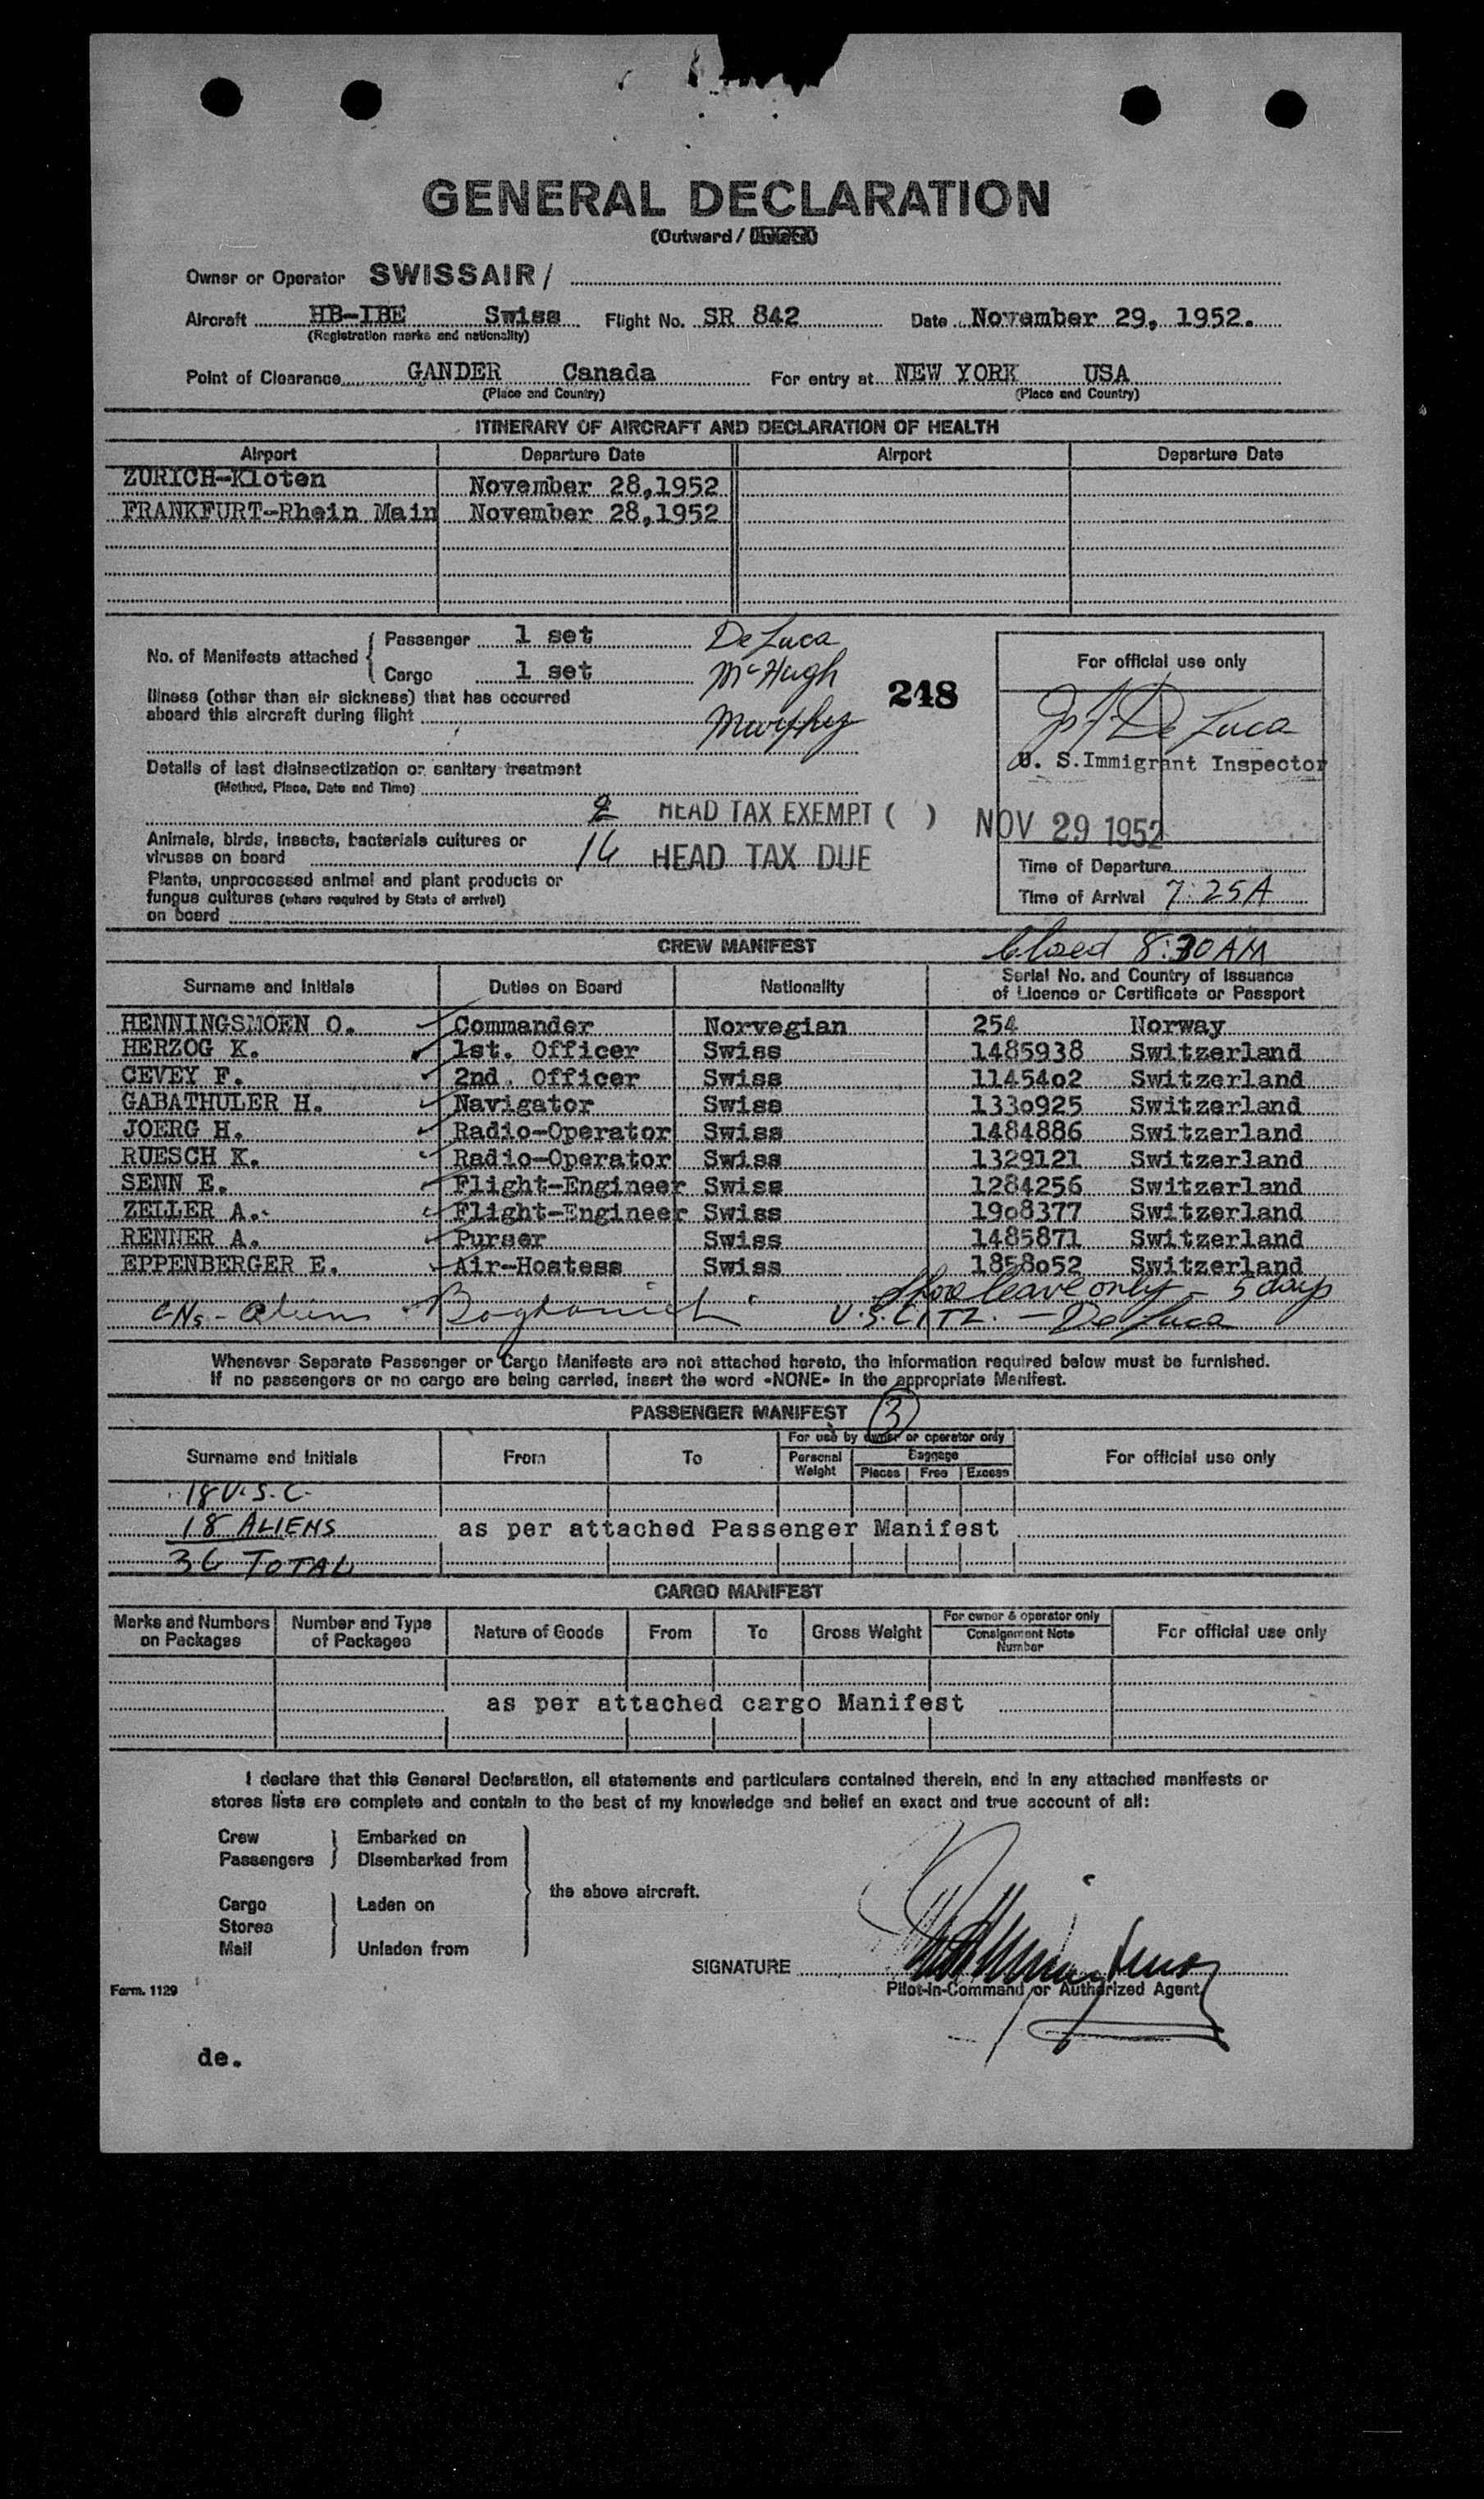 GENERAL DECLARATION
(Outward /
Owner or Operator SWISSAIR /
Aircraft HB-IBE Swiss Flight No. SR 842 Date November 29, 1952.
(Registration marks and nationality)
Point of Clearance GANDER Canada For entry at NEW YORK USA
(Place and Country) (Place and Country)
ITINERARY OF AIRCRAFT AND DECLARATION OF HEALTH
Airport Departure Date Airport Departure Date
ZURICH-Kloten November 28,1952
FRANKFURT-Rhein Main November 28,1952
No. of Manifests attached { Passenger 1 set De Luca
Cargo 1 set McHugh
Illness (other than air sickness) that has occurred
aboard this aircraft during flight Murphy
248
For official use only
De Luca
U. S. Immigrant Inspector
Details of last disinsectization or sanitary treatment
(Method, Place, Date and Time)
2 HEAD TAX EXEMPT ( ) NOV 29 1952
Animals, birds, insects, bacterials cultures or
viruses on board 16 HEAD TAX DUE
Time of Departure
Plants, unprocessed animal and plant products or
fungus cultures (where required by State of arrival)
on board
Time of Arrival 7:25A
CREW MANIFEST Closed 8:30 AM
Surname and Initials Duties on Board Nationality Serial No. and Country of Issuance
of Licence or Certificate or Passport
HENNINGSMOEN O. Commander Norwegian 254 Norway
HERZOG K. 1st. Officer Swiss 1485938 Switzerland
CEVEY F. 2nd. Officer Swiss 11454o2 Switzerland
GABATHULER H. Navigator Swiss 133o925 Switzerland
JOERG H. Radio-Operator Swiss 1484886 Switzerland
RUESCH K. Radio-Operator Swiss 1329121 Switzerland
SENN E. Flight-Engineer Swiss 1284256 Switzerland
ZELLER A. Flight-Engineer Swiss 19o8377 Switzerland
RENNER A. Purser Swiss 1485871 Switzerland
EPPENBERGER E. Air-Hostess Swiss 1858o52 Switzerland
Shore leave only - 5 days
U.S. CITZ. - De Luca
Whenever Separate Passenger or Cargo Manifests are not attached hereto, the information required below must be furnished.
If no passengers or no cargo are being carried, insert the word «NONE» in the appropriate Manifest.
PASSENGER MANIFEST 3
Surname and Initials From To For use by owner or operator only For official use only
Personal Weight Baggage
Pieces Free Excess
18 U.S.C.
18 ALIENS as per attached Passenger Manifest
36 TOTAL
CARGO MANIFEST
Marks and Numbers on Packages Number and Type of Packages Nature of Goods From To Gross Weight For owner & operator only Consignment Note Number For official use only
as per attached cargo Manifest
I declare that this General Declaration, all statements and particulars contained therein, and in any attached manifests or
stores lists are complete and contain to the best of my knowledge and belief an exact and true account of all:
Crew } Embarked on
Passengers } Disembarked from
the above aircraft.
Cargo } Laden on
Stores
Mail } Unladen from
SIGNATURE
Pilot-in-Command or Authorized Agent
Form. 1129
de.